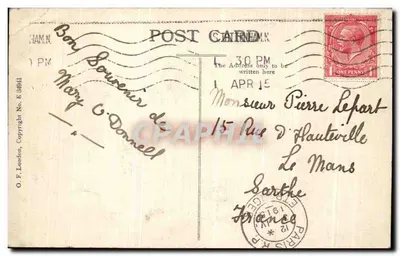 POST CARD
HAM.N.
30 PM
1 APR 15
0 PM
ONE PENNY
The Address only to be
written here
Bon Souvenir de
Mary O'Donnell
Monsieur Pierre Lepart
15 Rue d'Hauteville
Le Mans
Sarthe
France
CPARAMA
O. F. London, Copyright No. E 34041
PARIS R.P.
12 IV